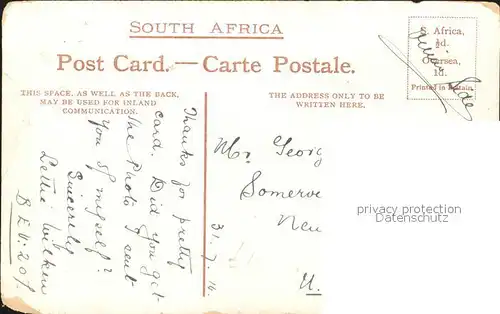 SOUTH AFRICA
Post Card.—Carte Postale.
S. Africa,
½d.
Oversea,
1d.
Printed in Britain.
THIS SPACE, AS WELL AS THE BACK,
MAY BE USED FOR INLAND
COMMUNICATION.
THE ADDRESS ONLY TO BE
WRITTEN HERE.
Thanks for pretty
card. Did you get
the Photo I sent
you of myself?
Sincerely
Lettie
B.E.V. 209.
31.7.16
Mr. Georg
Somerve
New
U.
Side
privacy protection
Datenschutz